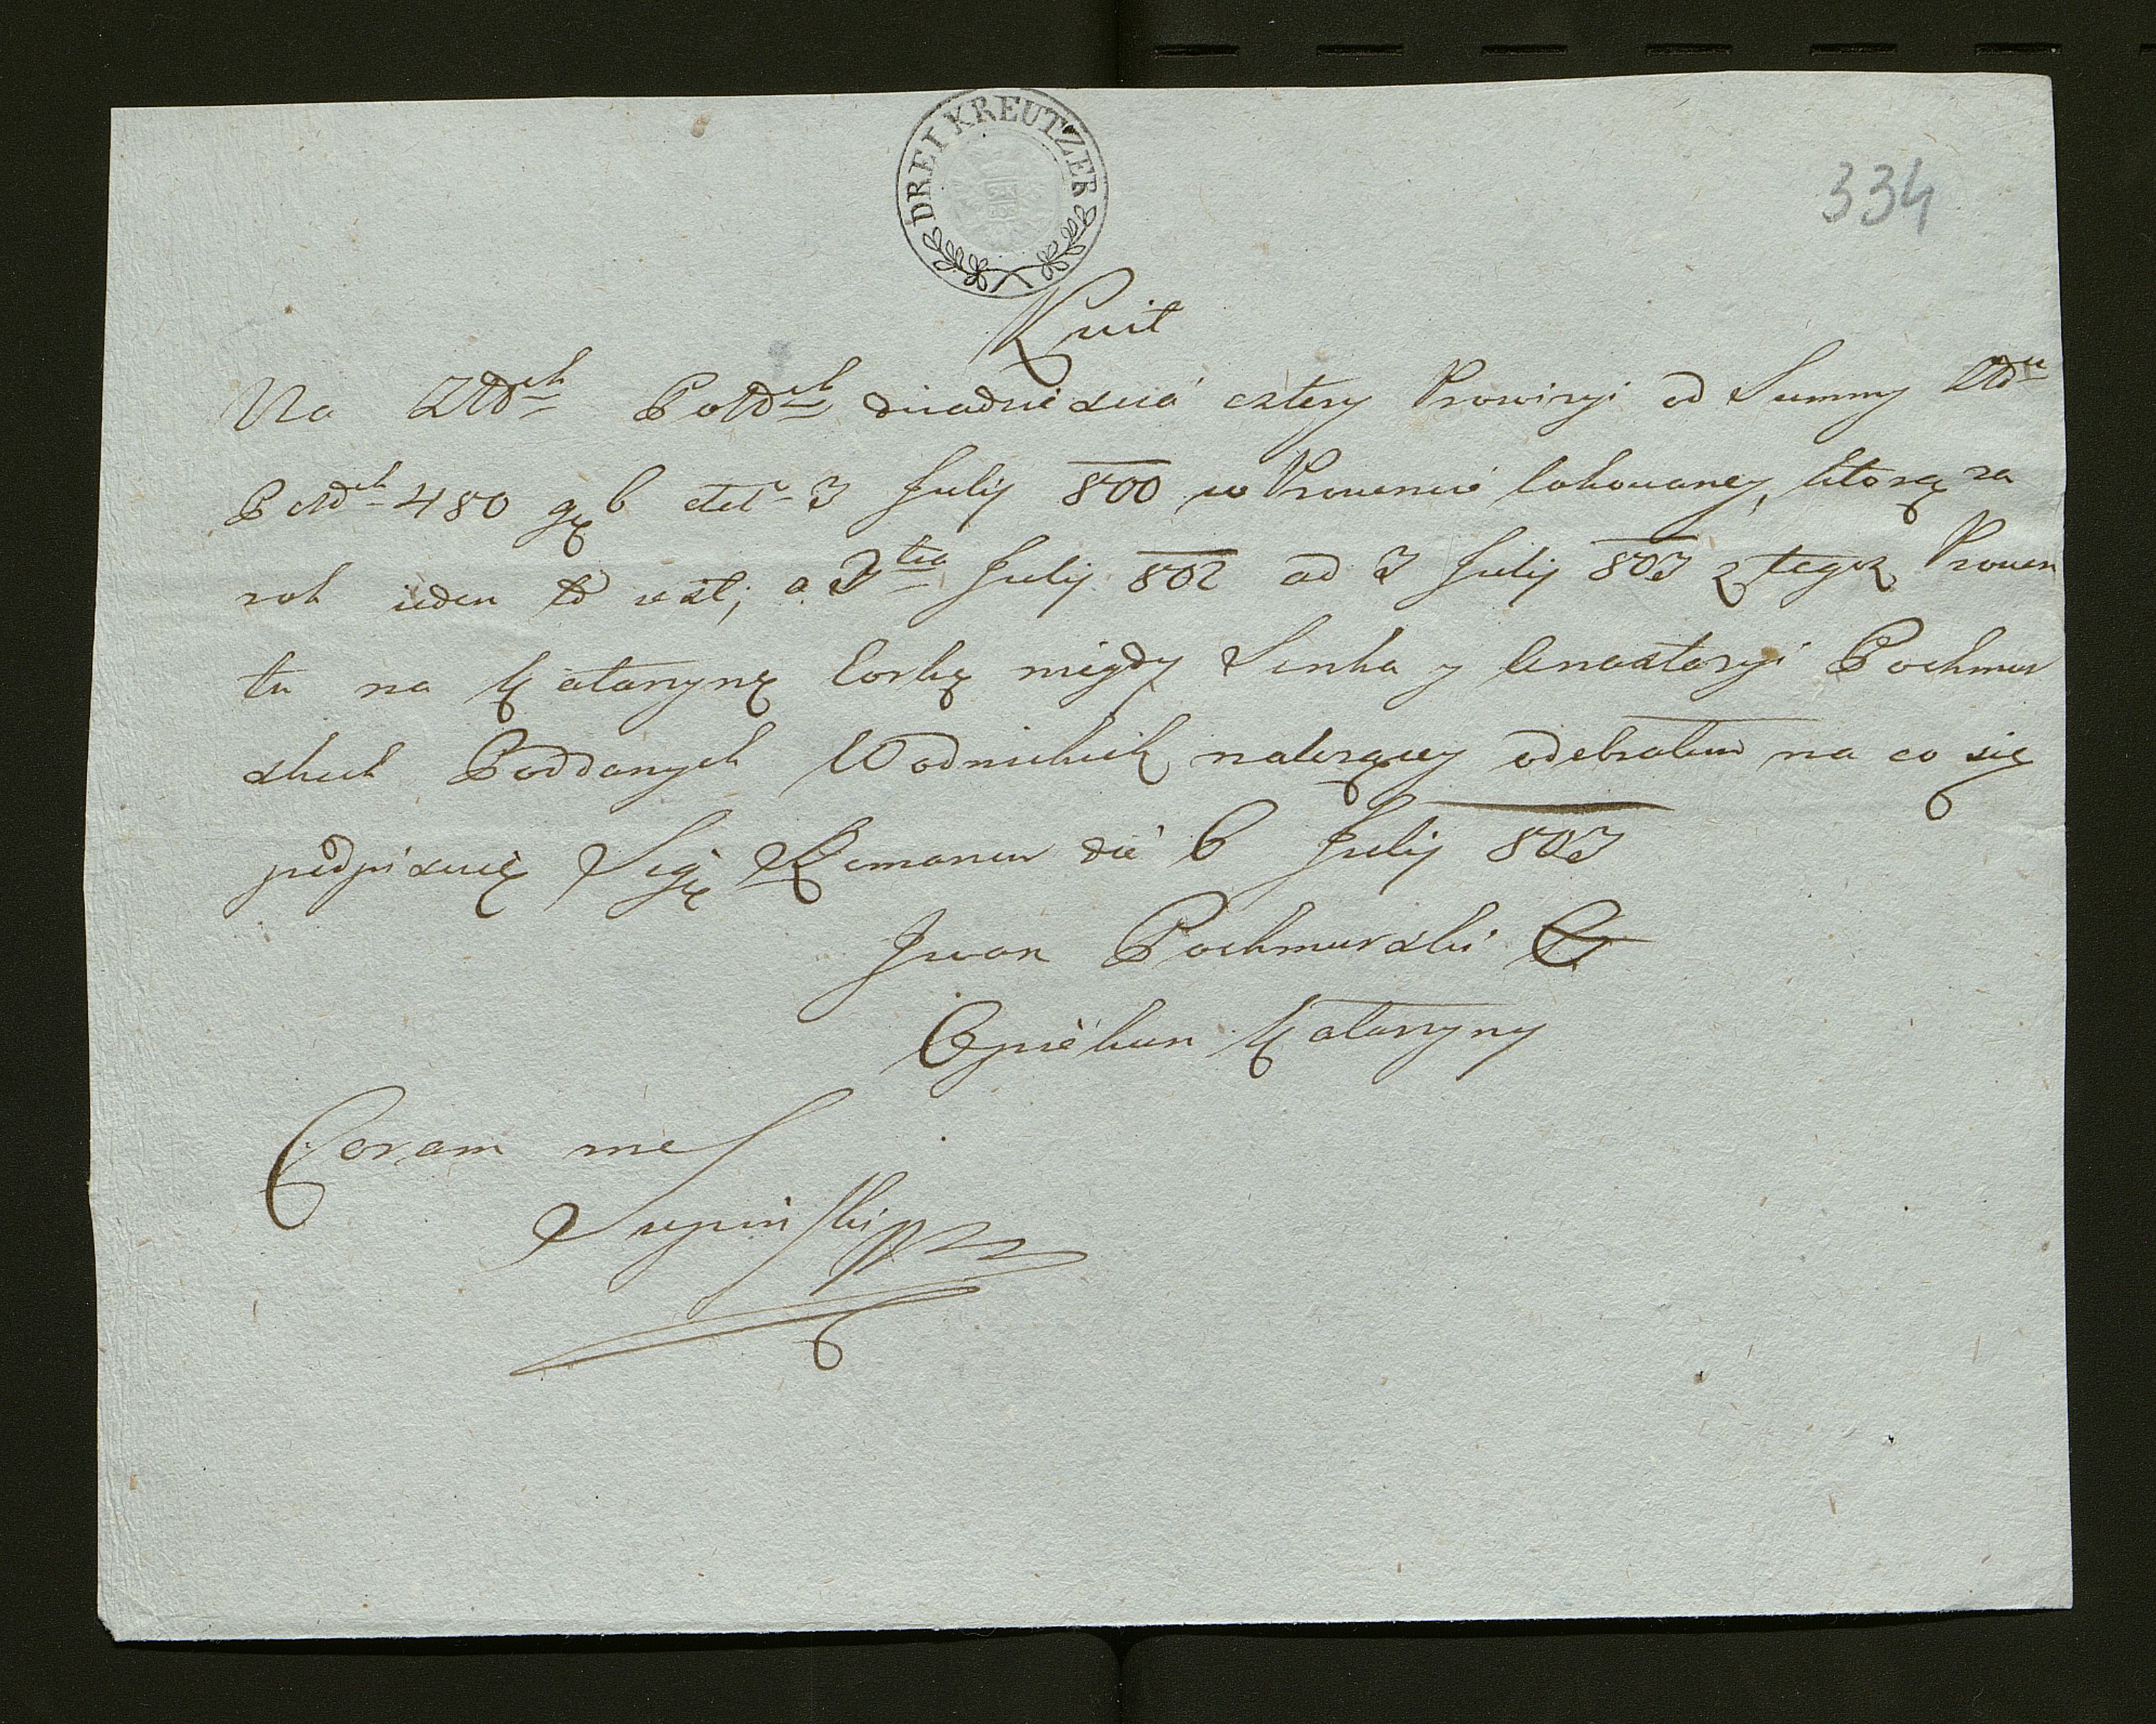 DREI KREUTZER
334
Kwit
Na Złtych Polłch dwadziescia cztery Prowizyi od Summy Złtu
Polłch 480 g 6 3 Julij 800 w Prowencie lokowaney, ktorą za
rok ieden to iest, a 3tia Julij 802 ad 3 Julij 803 z tegoż Prowen
tu na Katarzynę Corkę między Senka y Anastazyi Pochmur
skich Poddanych Wodnickich należącey odebrałem na co się
podpisuię Romanow die 6 Julij 803
Jwan Pochmurski
Opiekun Katarzyny
Coram me
Supiński